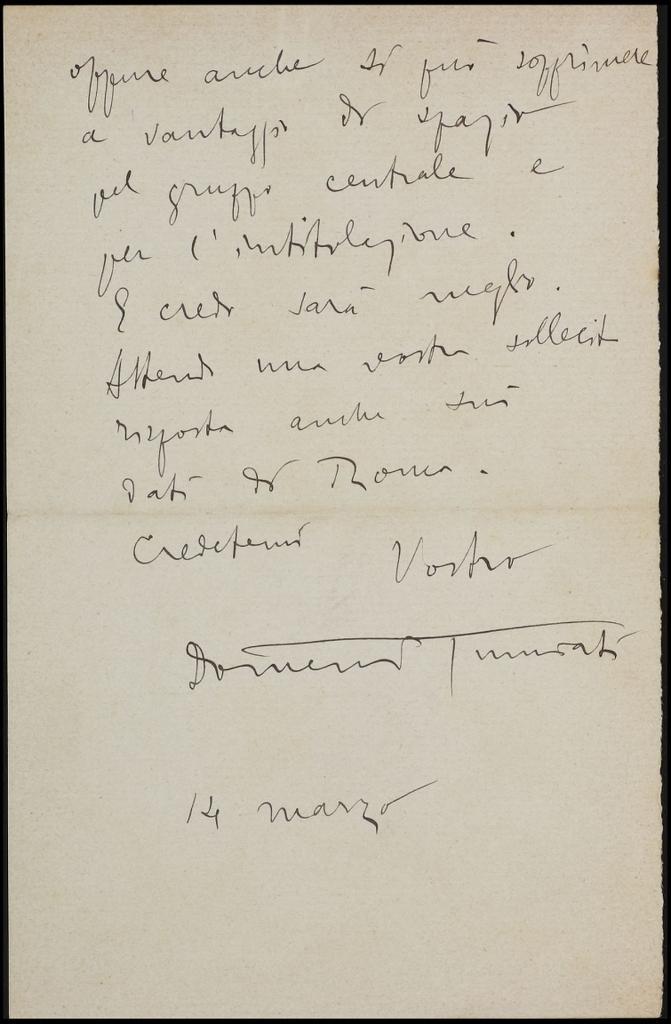 oppure anche si può sopprimere
a vantaggio di spazio
pel gruppo centrale e
per l'intitolazione.
E credo sarà meglio.
Attendo una vostra sollecita
risposta anche sui
dati di Roma.
Credetemi Vostro
Domenico Tumiati
14 marzo